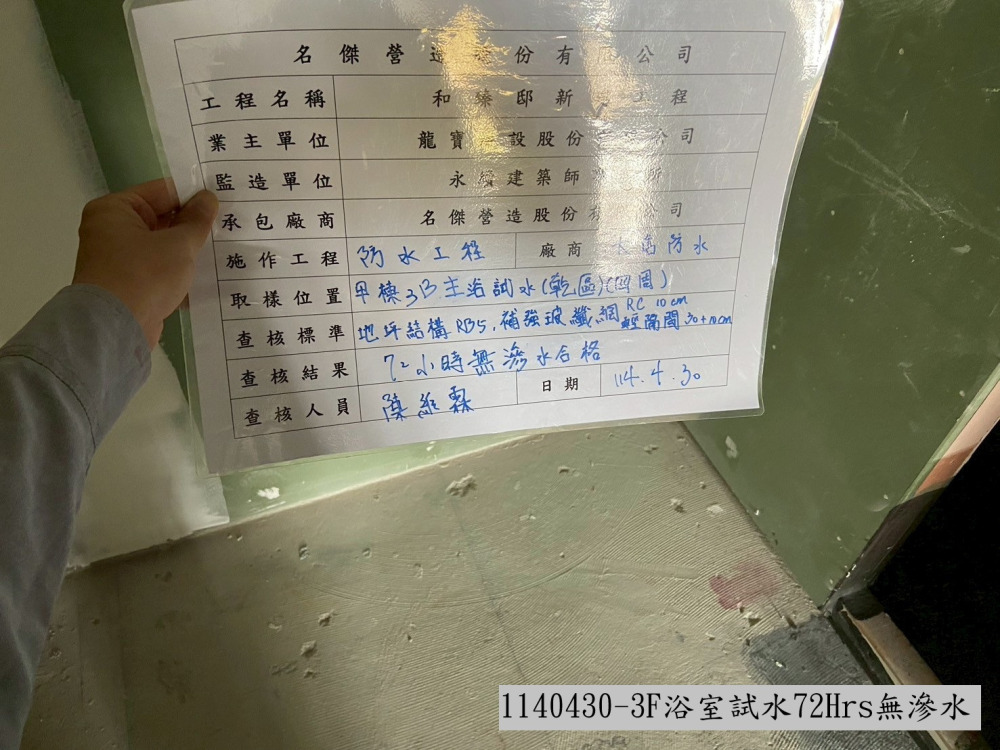 名傑營造 份有 公司
工程名稱 和臻邸新 工程
業主單位 龍寶 設股份 公司
監造單位 永 建築師 所
承包廠商 名傑營造股份有 公司
施作工程 防水工程 廠商 防水
取樣位置 甲棟3B主浴試水(乾區)(四周)
查核標準 地坪結構RB5,補強玻纖網 RC 10cm 輕隔間 30+10cm
查核結果 72小時無滲水合格
查核人員 陳維霖 日期 114.4.30
1140430-3F浴室試水72Hrs無滲水